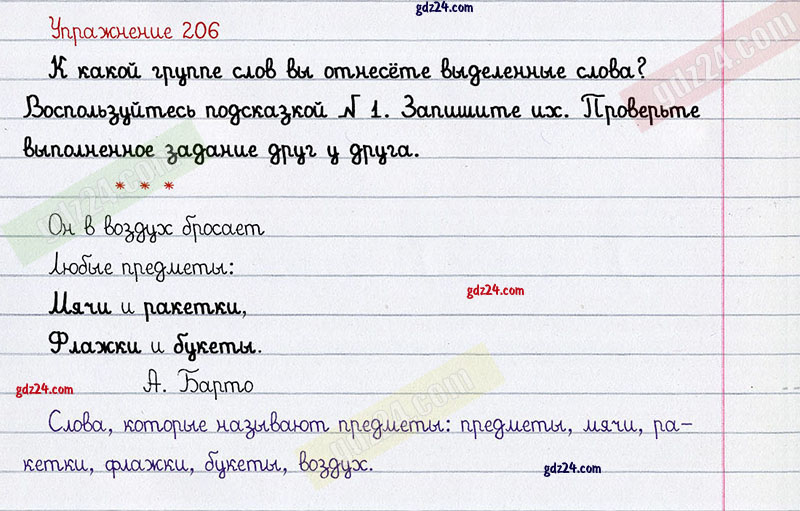 gdz24.com
Упражнение 206
К какой группе слов вы отнесёте выделенные слова?
gdz24.com
Воспользуйтесь подсказкой № 1. Запишите их. Проверьте
выполненное задание друг у друга.
* * *
gdz24.com
Он в воздух бросает
Любые предметы:
gdz24.com
Мячи и ракетки,
Флажки и букеты.
gdz24.com
А. Барто
gdz24.com
Слова, которые называют предметы: предметы, мячи, ра-
кетки, флажки, букеты, воздух.
gdz24.com